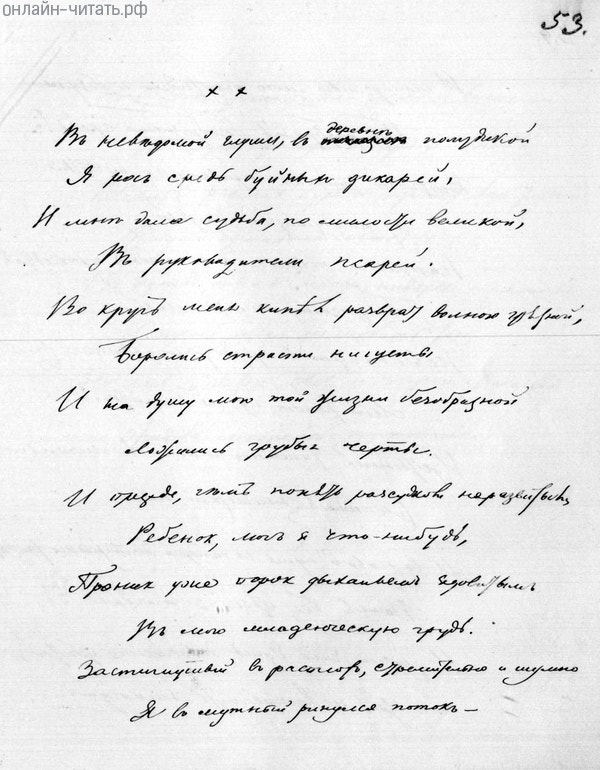 онлайн-читать.рф
53.
х х
Въ неведомой глуши, въ деревнѣ полудикой
Я росъ средь буйныхъ дикарей,
И мнѣ дала судьба, по милости великой,
Въ руководители псарей.
Вокругъ меня кипѣлъ развратъ волною грязной,
Боролись страсти нищеты
И на душу мою той жизни безобразной
Ложились грубыя черты.
И прежде, чѣмъ понять разсудкомъ неразвитымъ,
Ребенокъ, могъ я что-нибудь,
Проникъ уже порокъ дыханьемъ ядовитымъ
Въ мою младенческую грудь.
Застигнутый врасплохъ, стремительно и шумно
Я въ мутный ринулся потокъ —